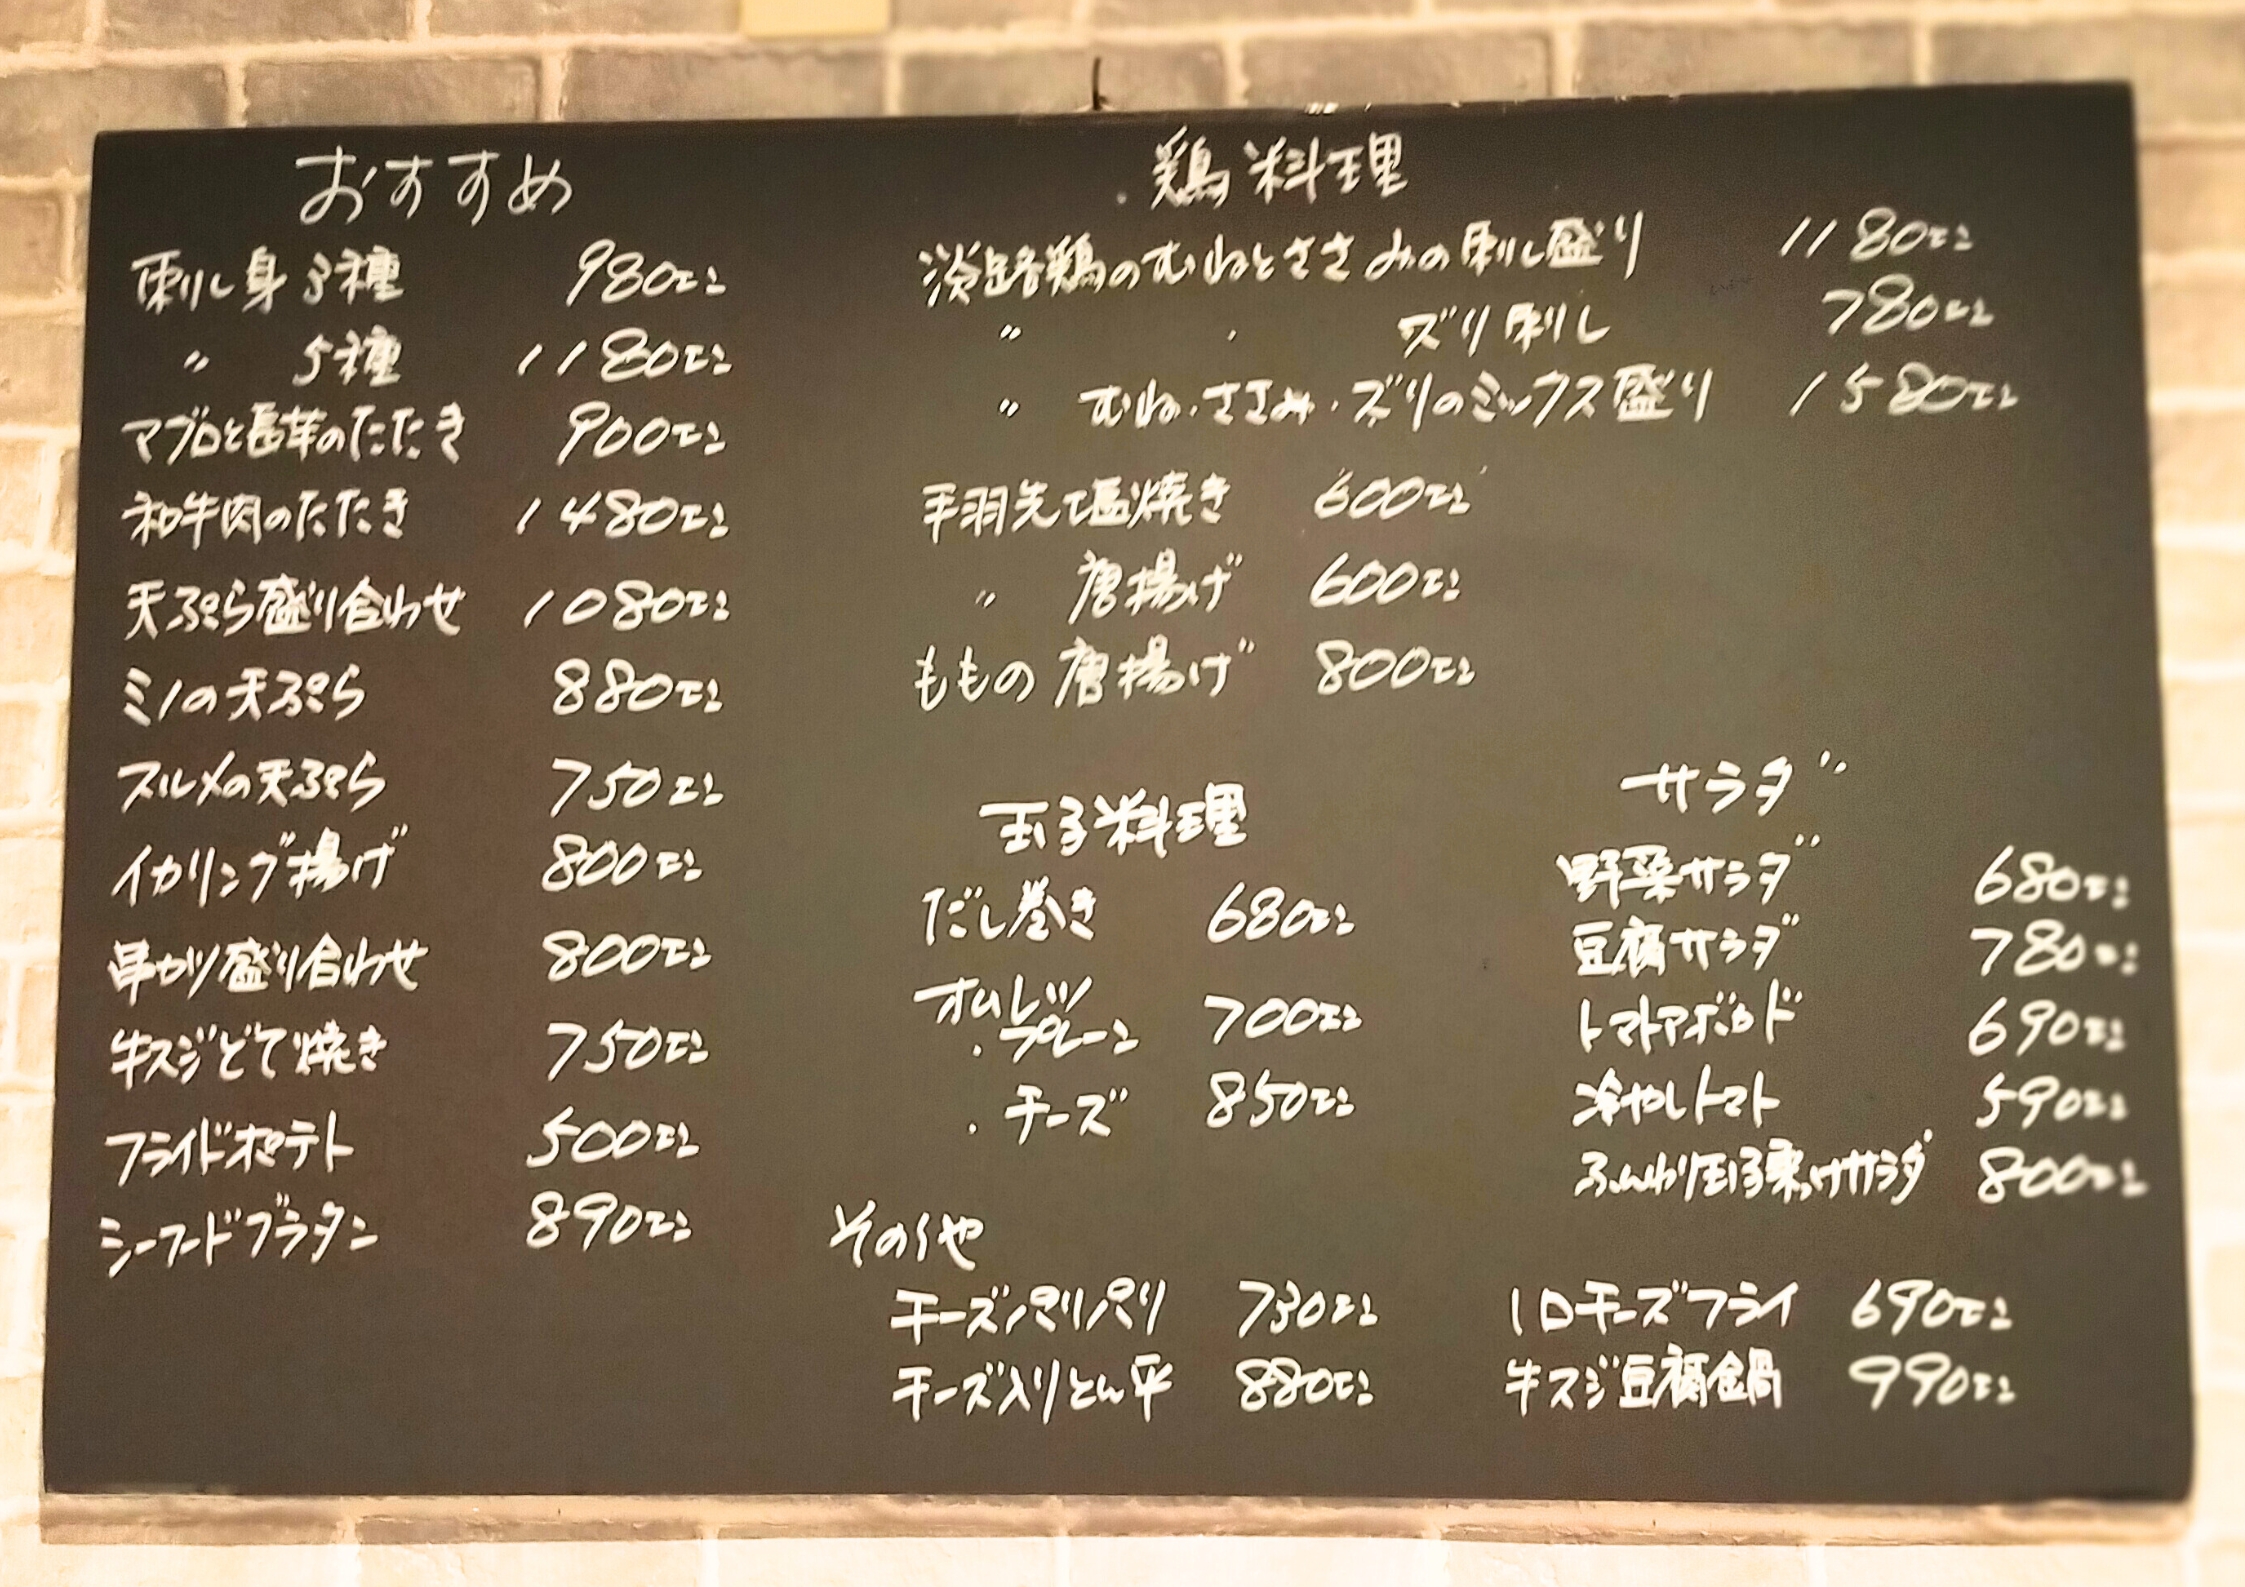 おすすめ
刺し身3種 980エン
〃 5種 1180エン
マグロと長芋のたたき 900エン
和牛肉のたたき 1480エン
天ぷら盛り合わせ 1080エン
ミノの天ぷら 880エン
スルメの天ぷら 750エン
イカリング揚げ 800エン
串カツ盛り合わせ 800エン
牛スジどて焼き 750エン
フライドポテト 500エン
シーフードグラタン 890エン
鶏料理
淡路鶏のむねとささみの刺し盛り 1180エン
〃 ズリ刺し 780エン
〃 むね・ささみ・ズリのミックス盛り 1580エン
手羽先塩焼き 600エン
〃 唐揚げ 600エン
ももの唐揚げ 800エン
玉子料理
だし巻き 680エン
オムレツ
・プレーン 700エン
・チーズ 850エン
サラダ
野菜サラダ 680エン
豆腐サラダ 780エン
トマトアボカド 690エン
冷やしトマト 590エン
ふんわり玉子乗っけサラダ 800エン
その他
チーズパリパリ 730エン
チーズ入りとん平 880エン
1口チーズフライ 690エン
牛スジ豆腐鍋 990エン